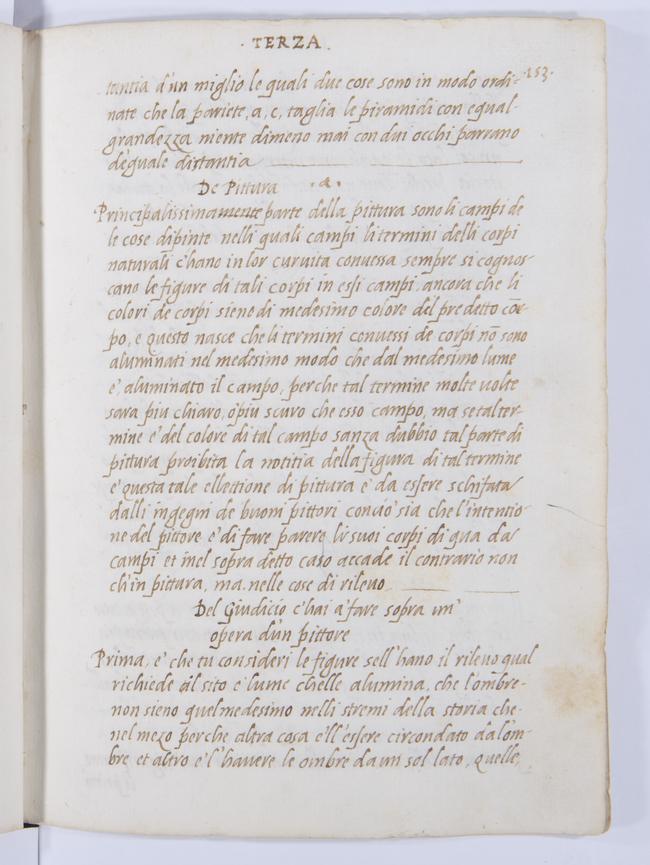 · TERZA ·
·153·
tantia d'un miglio le quali due cose sono in modo ordi-
nate che la pariete, a, c, taglia le piramidi con equal
grandezza niente dimeno mai con dui occhi parrano
d'equale distantia
De Pittura ·a·
Principalissimamente parte della pittura sono li campi de
le cose dipinte nelli quali campi li termini delli corpi
naturali c'hano in lor curuita conuessa sempre si cognos-
cano le figure di tali corpi in essi campi, ancora che li
colori de corpi sieno di medesimo colore del predetto cor-
po, e questo nasce che li termini conuessi de corpi nō sono
aluminati nel medesimo modo che dal medesimo lume
e' aluminato il campo, perche tal termine molte uolte
sara piu chiaro, o piu scuro che esso campo, ma se tal ter-
mine e' del colore di tal campo sanza dubbio tal parte di
pittura proibita la notitia della figura di tal termine
e' questa tale ellettione di pittura e' da essere schifata
dalli ingegni de buoni pittori concio' sia che l'intentio-
ne del pittore e' di fare parere li suoi corpi di qua da
campi et inel sopra detto caso accade il contrario non
ch'in pittura, ma nelle cose di rileuo
Del Giudicio c'hai a' fare sopra un'
opera d'un pittore
Prima, e' che tu consideri le figure sell' hano il rileuo qual
richiede il sito e' lume chelle alumina, che l'ombre
non sieno quel medesimo nelli stremi della storia che
nel mezo perche altra cosa e'll'essere circondato da l'om-
bre et altro e'l'hauere le ombre da un sol lato, quelle,